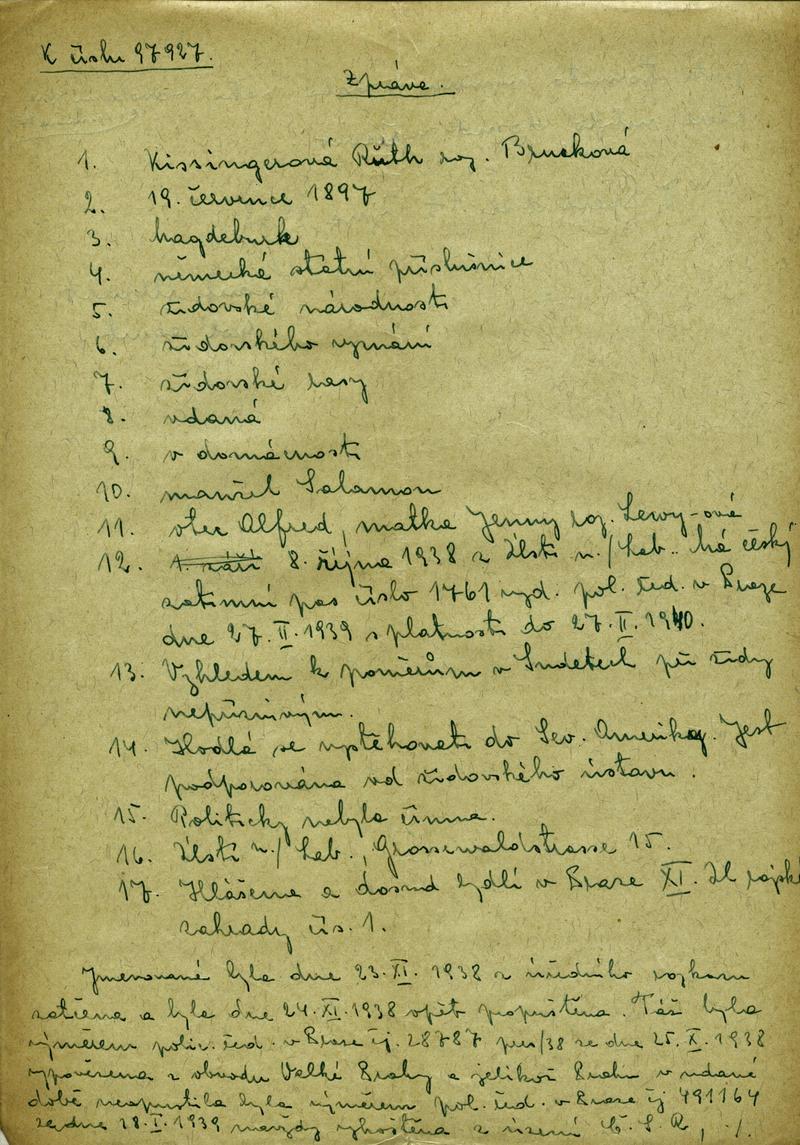 K číslu 97927.
Zpráva.
1. Kissingerová Ruth roz. Brucková
2. 19. července 1897
3. Magdeburk
4. německá státní příslušnice
5. židovské národnosti
6. židovského vyznání
7. židovské rasy
8. vdaná
9. v domácnosti
10. manžel Salamon
11. otec Alfred, matka Jenny roz. Lewy-ová
12. 1. září 8. října 1938 z Ústí n./Lab. Má český
zatimní pas číslo 1761 vyd. pol. řed. v Praze
dne 27.II.1939 s platností do 27.II.1940.
13. Vzhledem k poměrům v Sudetech pří židy
nepříznivým.
14. Hodlá se vystěhovati do Sev. Ameriky. Jest
podporována od židovského ústavu.
15. Politicky nebyla činna.
16. Ústí n./Lab., Grossewaldstrasse 15.
17. Hlášena a dosud bydlí v Praze XI. Ul rajské
zahrady čís. 1.
Jmenovaná byla dne 23.XI.1938 z úředního rozkazu
zatčena a byla dne 24.XI.1938 opět propuštěna. Táž byla
výměrem polic. řed. v Praze čj. 28787 pres/38 ze dne 25.X.1938
vypovězena z obvodu Velké Prahy a jelikož Prahu v udané
době neopustila byla výměrem pol. řed. v Praze čj 491164
ze dne 28.I.1939 navždy vyhoštěna z území Č.S.R. ./.